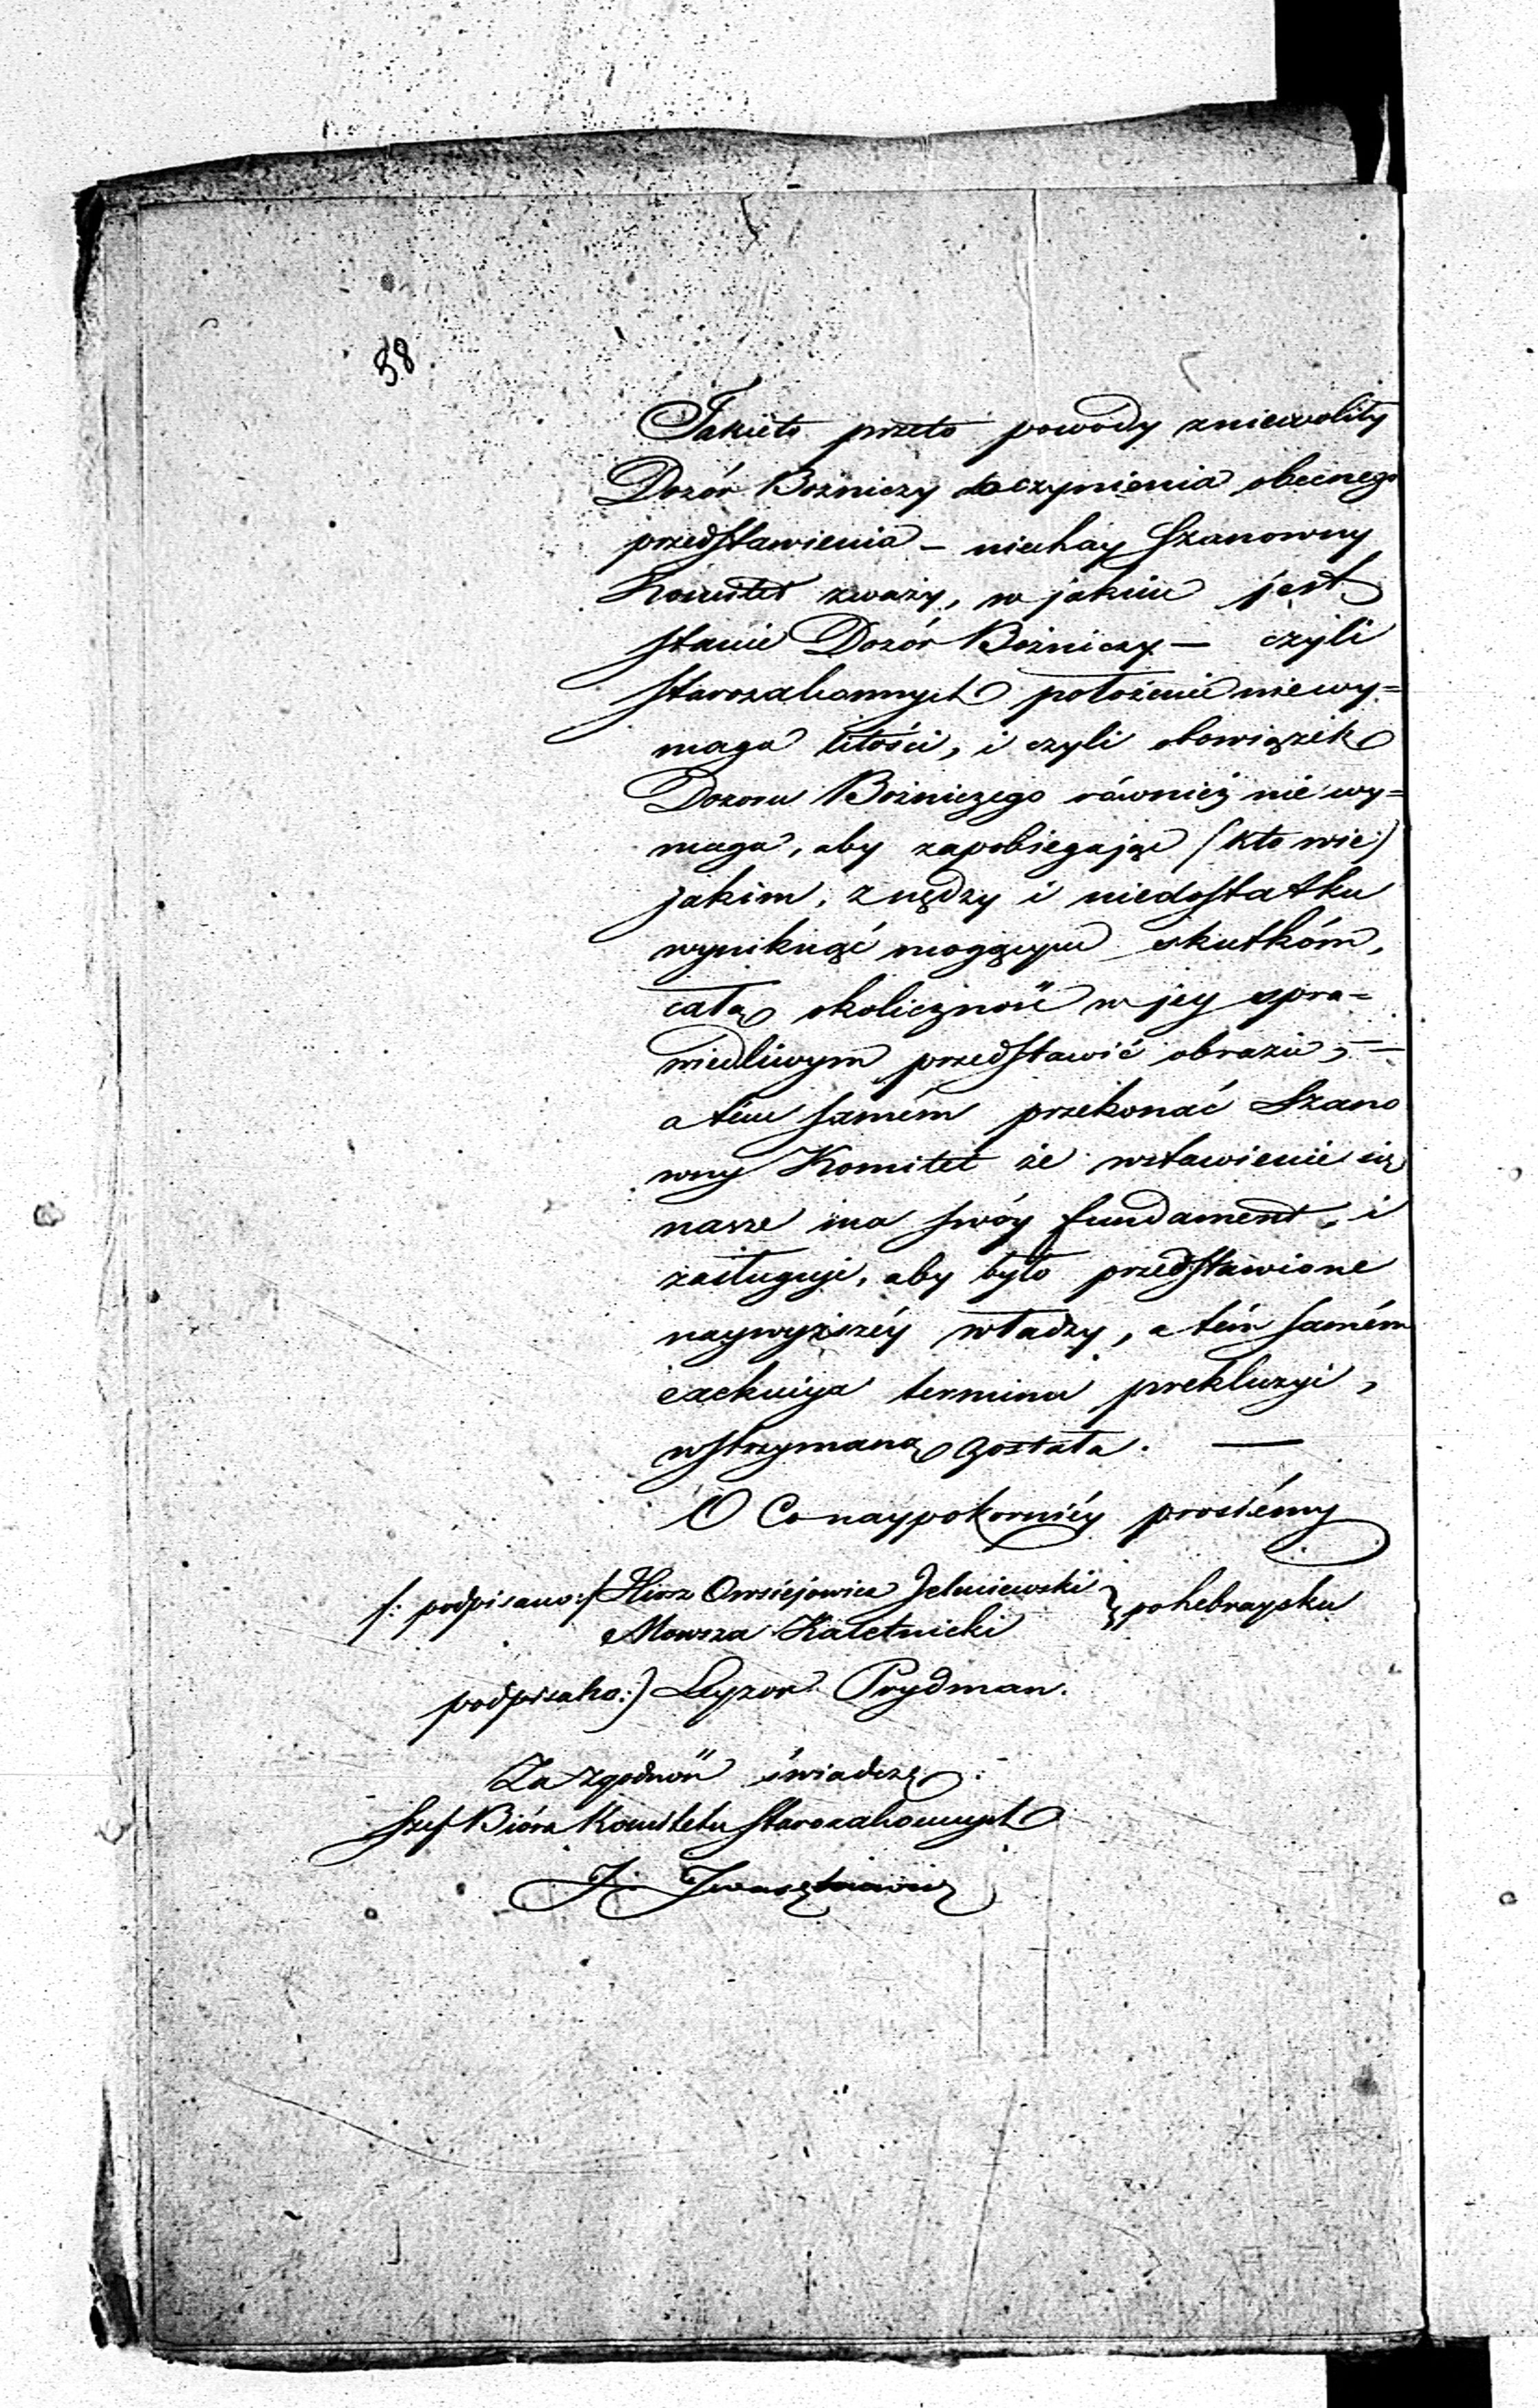 58
Takieto przeto powody zniewoliły
Dozór Bożniczy do czynienia obecnego
przedstawienia – niechay Szanowny
Komitet zważy, w jakim jest
stanie Dozór Bożniczy – czyli
starozakonnych położenie nie wy=
maga litości, i czyli obowiązek
Dozoru Bożniczego również nie wy=
maga, aby zapobiegając (kto wie)
jakim, z nędzy i niedostatku
wyniknąć mogącym skutkóm,
całą okoliczność w jey spra=
wiedliwym przedstawić obrazie, –
a tém samém przekonać Szano
wny Komitet że wstawienie się
nasze ma swóy fundament, i
zasługuje, aby było przedstawione
naywyższéy władzy, a tém samém
exekucya termina prekluzyi,
wstrzymaną została. —
O Co naypokorniéy prosiémy
/: podpisano:/ Hirsz Owsiejowicz Jeleniewski } po hebraysku
Mowsza Kaletnicki
podpisano:) Leyzor Prydman.
Za zgodność świadczę:
Szef Bióra Komitetu Starozakonnych
J. Iwaszkiewicz